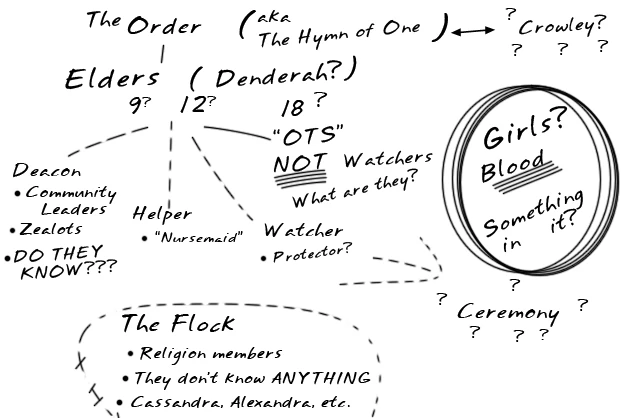 The Order
(aka
The Hymn of One)
?
Crowley?
? ? ?
Elders (Denderah?)
9? 12? 18?
"OTS"
NOT Watchers
What are they?
Girls?
Blood
Something
in it?
Deacon
• Community
Leaders
• Zealots
• DO THEY
KNOW???
Helper
• "Nursemaid"
Watcher
• Protector?
?
? Ceremony ?
? ? ?
The Flock
• Religion members
• They don't know ANYTHING
• Cassandra, Alexandra, etc.